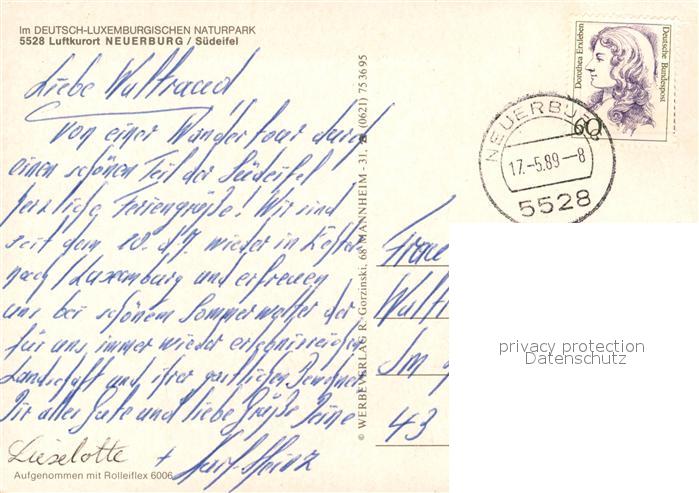 Im DEUTSCH-LUXEMBURGISCHEN NATURPARK
5528 Luftkurort NEUERBURG / Südeifel
Liebe Waltraud
Von einer Wandertour durch
einen schönen Teil der Südeifel
herzliche Feriengrüße! Wir sind
seit dem 10. d. M. wieder in
nach / Luxemburg und erfreuen
uns bei schönem Sommerwetter der
für uns immer wieder erlebnisreichen
Landschaft und ihrer gastlichen Bewohner
Dir alles Gute und liebe Grüße Deine
Lieselotte + Karl-Heinz
Aufgenommen mit Rolleiflex 6006
© WERBEVERLAG R. Gorzinski, 68 MANNHEIM - 31, (0621) 75 36 95
Dorothea Erxleben
Deutsche Bundespost
60
NEUERBURG
17.-5.89--8
5528
Frau
Walt
Im
43
privacy protection
Datenschutz